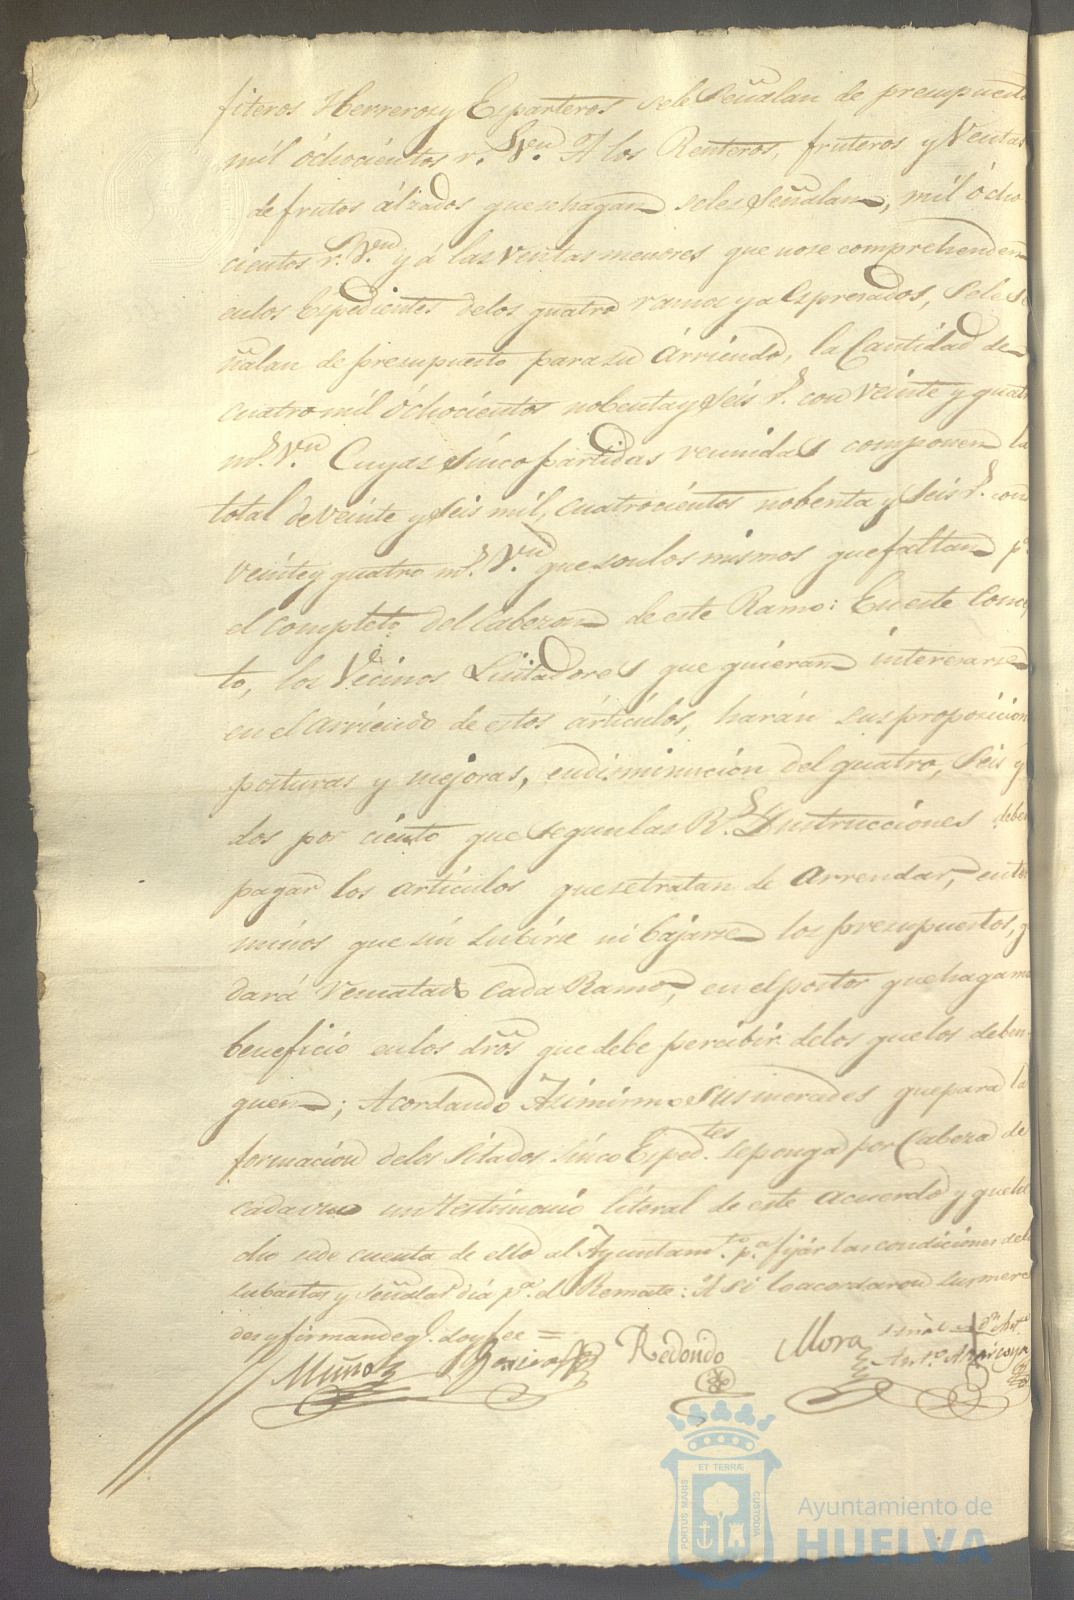 fiteros Herreros y Esparteros se le señalan de presupuesto
mil óchocientos r.s V.n A los Renteros, fruteros y Ventas
de frutos álzados que se hagan se les señalan, mil ócho
cientos r.s V.n y á las Ventas menores que no se comprehenden
en los Expedientes de los quatro ramos ya espresados, se le se
ñalan de presupuesto para su Arriendo, la Cantidad de
cuatro mil óchocientos nobenta y seis r.s con veinte y quatro
m.s V.n Cuyas sinco partidas reunidas componen la
total de veinte y seis mil, cuatrocientos nobenta y seis r.s con
veinte y quatro m.s V.n que son los mismos que faltan p.a
el completo del Cabezon de este Ramo: En este Concep
to, los Vecinos Lisitadores que quieran interesarse
en el arriendo de estos árticulos, harán sus proposicion
posturas y mejoras, en diminución del quatro, seis y
dos por ciento que segun las R.s Instrucciones deben
pagar los articulos que se tratan de Arrendar, en ter
minos que sin subirse ni bajarse los presupuestos, q
dará rematado cada Ramo, en el postor que haga mas
beneficio en los dros que debe percibir de los que los deben
guen; Acordando Asimismo Sus mercedes que para la
formacion de los sitados sinco Esped.tes se ponga por Cabeza de
cada uno un testimonio literal de este acuerdo y que he
cho se de cuenta de ello al Ayuntam.to p.a fijar las condiciones de
subastas y señalar dia p.a el Remate: A si lo acordaron sus merce
des y firman de q.e doy fee =
Muñoz Redondo Mora
PORTUS MARIS ET TERRÆ CUSTODIA
Ayuntamiento de
HUELVA